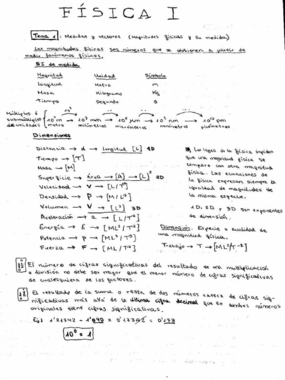 FÍSICA I
Tema 1: Medidas y vectores (Magnitudes físicas y su medida)
Las magnitudes físicas son números que se obtienen a partir de medir fenómenos físicos.
SI de medida
Magnitud Unidad Símbolo
Longitud Metro m
Masa Kilogramo Kg
Tiempo Segundo s
Múltiplos y submúltiplos de unidades
10⁰ m → 10³ mm → 10⁶ μm → 10⁹ nm → 10¹² pm
metro milímetros micrómetros nanómetros picómetros
Dimensiones
Distancia → d → longitud [L] 1D
Tiempo → [T]
Masa → [M]
Superficie → área → [A] → [L²] 2D
Velocidad → V → [L/T]
Densidad → ρ → [M/L³]
Volumen → V → [L³] 3D
Aceleración → a → [L/T²]
Energía → E → [ML²/T²]
Potencia → P → [ML²/T³]
Fuerza → F → [ML/T²]
La lógica de la física implica que una magnitud física se compara con otra magnitud física. Las ecuaciones de la física expresan siempre la igualdad de magnitudes de la misma especie.
1D, 2D y 3D son exponentes de dimensión.
Dimensión: Especie o cualidad de una magnitud física.
Trabajo → T → [ML²/T²]
El número de cifras significativas del resultado de una multiplicación o división no debe ser mayor que el menor número de cifras significativas de cualesquiera de los factores.
El resultado de la suma o resta de dos números carece de cifras significativas más allá de la última cifra decimal en que ambos números originales tiene cifras significativas.
10⁰ = 1